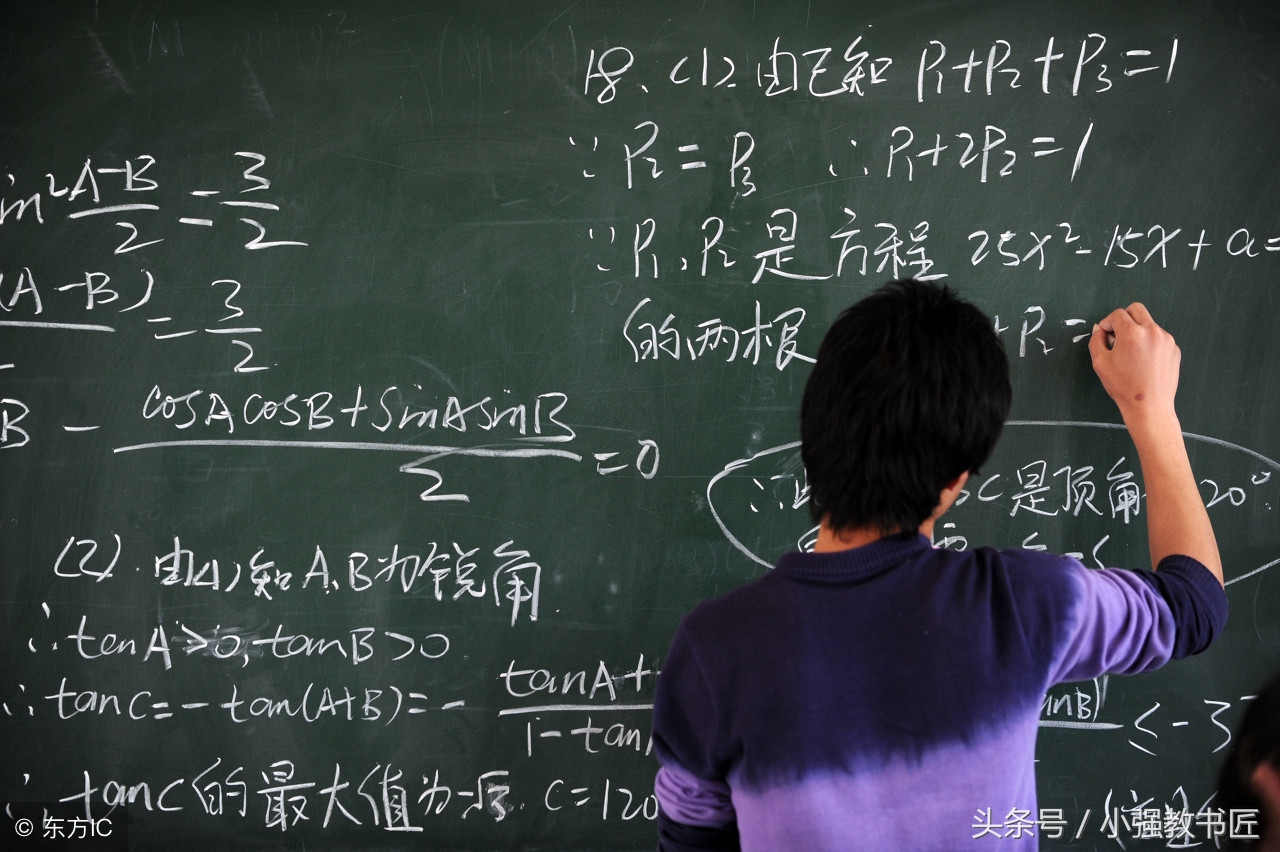 in²(A-B)/2 = 3/2
(A-B) = 3/2
B - (cosAcosB+sinAsinB)/2 = 0
(2).由(1)知A、B为锐角.
∴tenA>0,tanB>0
∴tanC=-tan(A+B)=-(tanA+ /1-tan
∴tanC的最大值为-√3. C=120
18、(1).由已知 P₁+P₂+P₃=1
∵P₂=P₃ ∴P₁+2P₂=1
∵P₁,P₂是方程 25x²-15x+a=
的两根 +P₂=
∴ C是顶角 20°
anB) ≤-3
© 东方IC
头条号 / 小强教书匠